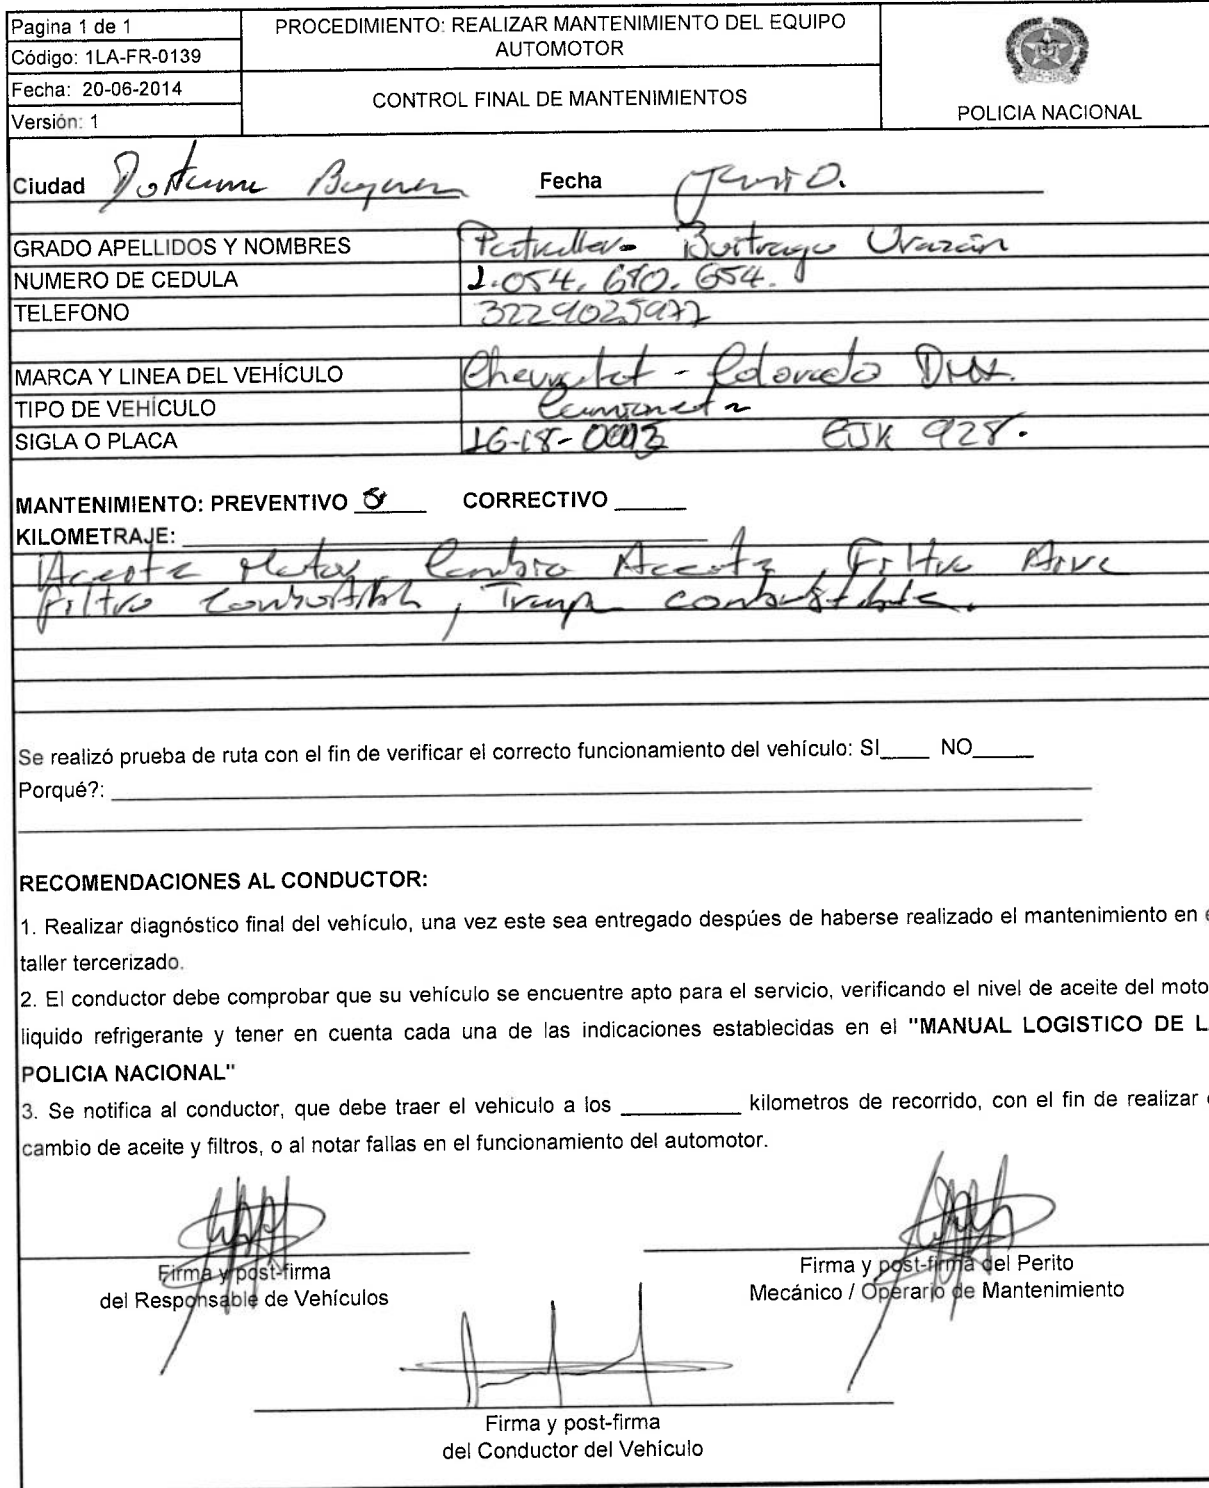 Pagina 1 de 1
Código: 1LA-FR-0139
Fecha: 20-06-2014
Versión: 1
PROCEDIMIENTO: REALIZAR MANTENIMIENTO DEL EQUIPO
AUTOMOTOR
CONTROL FINAL DE MANTENIMIENTOS
POLICIA NACIONAL
Ciudad Fecha Junio.
GRADO APELLIDOS Y NOMBRES Patrullero Buitrago Urazán
NUMERO DE CEDULA 1.054.680.654.
TELEFONO 3229025977
MARCA Y LINEA DEL VEHÍCULO Chevrolet - Colorado Dmx.
TIPO DE VEHÍCULO Camioneta
SIGLA O PLACA 16-18-0013 928.
MANTENIMIENTO: PREVENTIVO CORRECTIVO
KILOMETRAJE:
Aceite Motor, Cambio Aceite, Filtro Aire
Filtro Combustible, Trampa combustible.
Se realizó prueba de ruta con el fin de verificar el correcto funcionamiento del vehículo: SI____ NO____
Porqué?:
RECOMENDACIONES AL CONDUCTOR:
1. Realizar diagnóstico final del vehículo, una vez este sea entregado despúes de haberse realizado el mantenimiento en e
taller tercerizado.
2. El conductor debe comprobar que su vehículo se encuentre apto para el servicio, verificando el nivel de aceite del moto
liquido refrigerante y tener en cuenta cada una de las indicaciones establecidas en el "MANUAL LOGISTICO DE L
POLICIA NACIONAL"
3. Se notifica al conductor, que debe traer el vehiculo a los __________ kilometros de recorrido, con el fin de realizar e
cambio de aceite y filtros, o al notar fallas en el funcionamiento del automotor.
Firma y post-firma
del Responsable de Vehículos
Firma y post-firma del Perito
Mecánico / Operario de Mantenimiento
Firma y post-firma
del Conductor del Vehículo